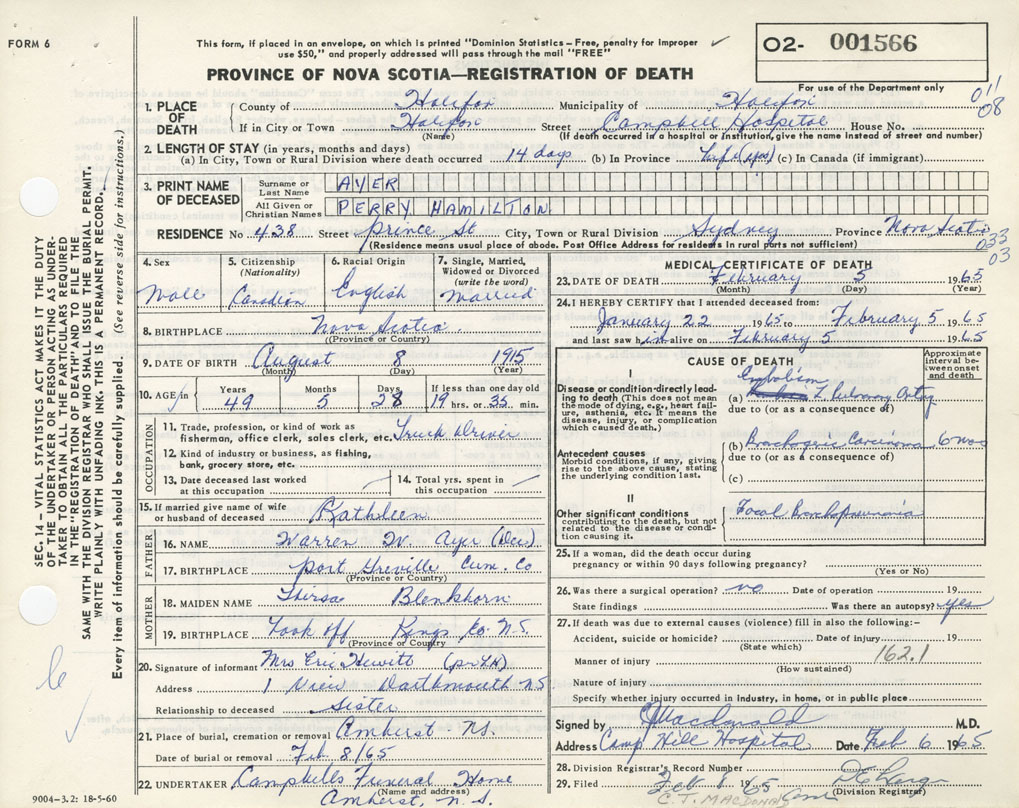 FORM 6
This form, if placed in an envelope, on which is printed "Dominion Statistics – Free, penalty for improper
use $50," and properly addressed will pass through the mail "FREE"
02- 001566
For use of the Department only
PROVINCE OF NOVA SCOTIA—REGISTRATION OF DEATH
011
08
1. PLACE OF DEATH
County of Halifax Municipality of Halifax
If in City or Town Halifax Street Camphill Hospital House No.
(Name) (If death occurred in a hospital or institution, give the name instead of street and number)
2. LENGTH OF STAY (in years, months and days)
(a) In City, Town or Rural Division where death occurred 14 days (b) In Province Life (yrs) (c) In Canada (if immigrant)
3. PRINT NAME OF DECEASED
Surname or Last Name AYER
All Given or Christian Names PERRY HAMILTON
RESIDENCE No. 438 Street Prince St City, Town or Rural Division Sydney Province Nova Scotia
(Residence means usual place of abode. Post Office Address for residents in rural parts not sufficient)
033
03
4. Sex
Male
5. Citizenship
(Nationality)
Canadian
6. Racial Origin
English
7. Single, Married,
Widowed or Divorced
(write the word)
Married
8. BIRTHPLACE Nova Scotia
(Province or Country)
9. DATE OF BIRTH August 8 1915
(Month) (Day) (Year)
10. AGE in
Years 49
Months 5
Days 28
If less than one day old
19 hrs. or 35 min.
OCCUPATION
11. Trade, profession, or kind of work as
fisherman, office clerk, sales clerk, etc. Truck Driver
12. Kind of industry or business, as fishing,
bank, grocery store, etc.
13. Date deceased last worked
at this occupation
14. Total yrs. spent in
this occupation
15. If married give name of wife
or husband of deceased Kathleen
FATHER
16. NAME Warren W. Ayer (Dec)
17. BIRTHPLACE Port Greville Cum. Co
(Province or Country)
MOTHER
18. MAIDEN NAME Theresa Blenkhorn
19. BIRTHPLACE Look off Kings Co. N.S.
(Province or Country)
20. Signature of informant Mrs Eric Hewitt
Address 1 View Dartmouth NS
Relationship to deceased Sister
21. Place of burial, cremation or removal Amherst NS.
Date of burial or removal Feb 8/65
22. UNDERTAKER Campbells Funeral Home
(Name and address)
Amherst, N.S.
9004-3.2: 18-5-60
MEDICAL CERTIFICATE OF DEATH
23. DATE OF DEATH February 5 1965
(Month) (Day) (Year)
24. I HEREBY CERTIFY that I attended deceased from:
January 22 1965 to February 5 1965
and last saw him alive on February 5 1965
CAUSE OF DEATH
Approximate
interval be-
tween onset
and death
I
Disease or condition directly lead-
ing to death (This does not mean
the mode of dying, e.g., heart fail-
ure, asthenia, etc. It means the
disease, injury, or complication
which caused death.)
Embolism
(a) L Pulmonary Artery
due to (or as a consequence of)
(b) Bronchogenic Carcinoma 6 mos
due to (or as a consequence of)
Antecedent causes
Morbid conditions, if any, giving
rise to the above cause, stating
the underlying condition last.
(c)
II
Other significant conditions
contributing to the death, but not
related to the disease or condi-
tion causing it.
Focal Bronchopneumonia
25. If a woman, did the death occur during
pregnancy or within 90 days following pregnancy?
(Yes or No)
26. Was there a surgical operation? no Date of operation 19
State findings Was there an autopsy? yes
27. If death was due to external causes (violence) fill in also the following:-
Accident, suicide or homicide? Date of injury 19
(State which)
162.1
Manner of injury
(How sustained)
Nature of injury
Specify whether injury occurred in industry, in home, or in public place
Signed by J Macdonald M.D.
Address Camp Hill Hospital Date Feb 6 1965
28. Division Registrar's Record Number
29. Filed Feb 8 1965
(Division Registrar)
C. J. MACDONALD
SEC. 14 – VITAL STATISTICS ACT MAKES IT THE DUTY
OF THE UNDERTAKER OR PERSON ACTING AS UNDER-
TAKER TO OBTAIN ALL THE PARTICULARS REQUIRED
IN THE "REGISTRATION OF DEATH" AND TO FILE THE
SAME WITH THE DIVISION REGISTRAR WHO SHALL ISSUE THE BURIAL PERMIT.
WRITE PLAINLY WITH UNFADING INK. THIS IS A PERMANENT RECORD.
Every item of information should be carefully supplied. (See reverse side for instructions.)